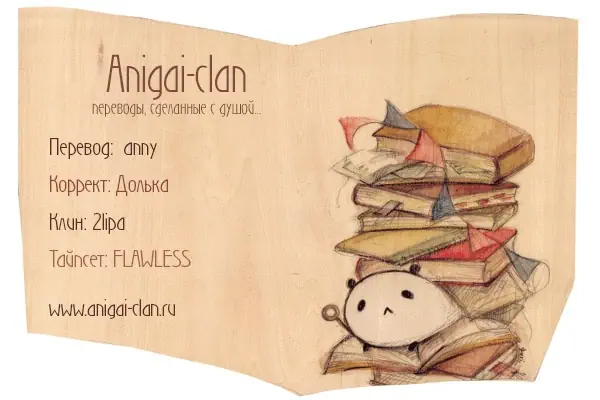 Anigai-clan
переводы, сделанные с душой...
Перевод: anny
Коррект: Долька
Клин: 2lipa
Тайпсет: FLAWLESS
www.anigai-clan.ru